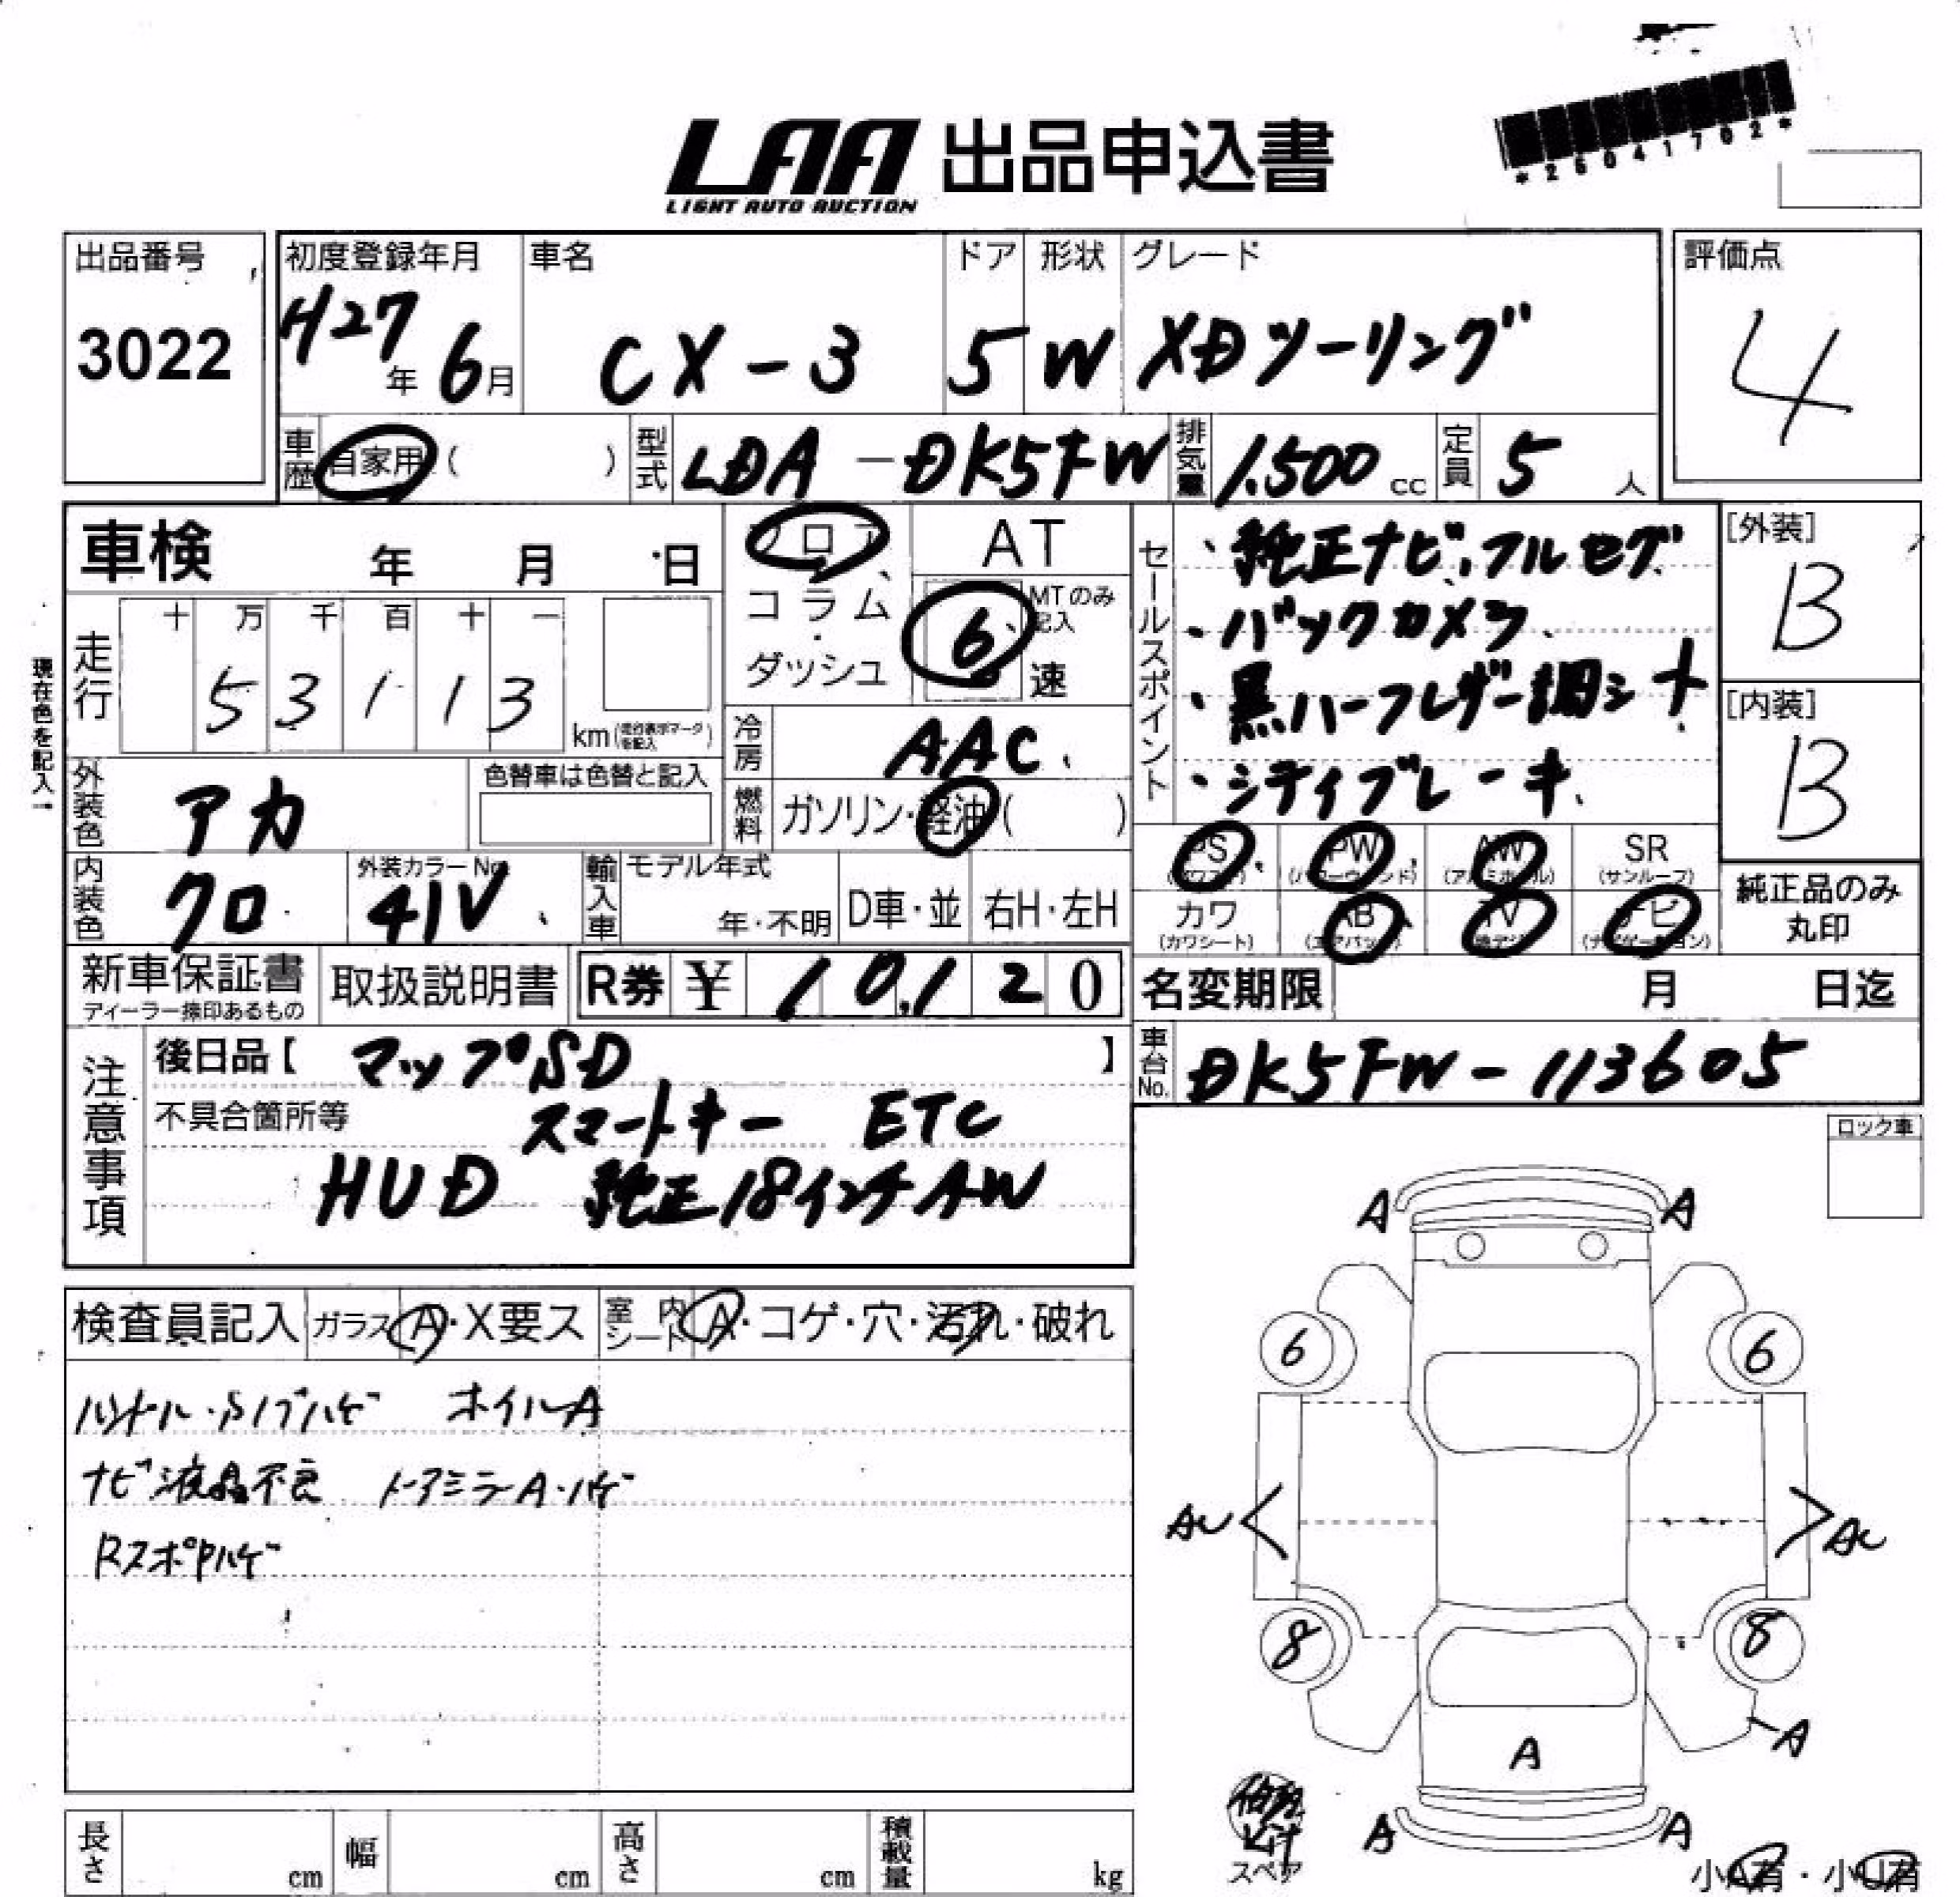 *26041702*
LAA 出品申込書
LIGHT AUTO AUCTION
出品番号
3022
初度登録年月
H27年 6月
車名
CX-3
ドア
5
形状
W
グレード
XDツーリング
評価点
4
車歴 自家用 ( )
型式 LDA-DK5FW
排気量 1,500 cc
定員 5 人
車検 年 月 日
走行
十 万 千 百 十 一
5 3 1 1 3
km (走行表示マークを記入)
現在色を記入→
外装色 アカ
色替車は色替と記入
内装色 クロ
外装カラーNo. 41V
フロア
コラム
ダッシュ
AT
6 速
MTのみ記入
冷房 AAC
燃料 ガソリン・軽油 ( )
輸入車
モデル年式
年・不明
D車・並
右H・左H
セールスポイント
・純正ナビ、フルセグ
・バックカメラ
・黒ハーフレザー調シート
・シティブレーキ
PS
PW
AW (アルミホイル)
SR (サンルーフ)
カワ (カワシート)
AB (エアバック)
TV
ナビ (ナビゲーション)
[外装]
B
[内装]
B
純正品のみ
丸印
新車保証書
ディーラー捺印あるもの
取扱説明書
R券 ¥ 10,120
名変期限 月 日迄
車台No. DK5FW-113605
注意事項
後日品【 マップSD 】
不具合箇所等 スマートキー ETC
HUD 純正18インチAW
ロック車
検査員記入
ガラス A・X要ス
室内シート A・コゲ・穴・汚れ・破れ
ハンドル・シフトハゲ ホイルA
ナビ液晶不良 ドアミラーA・ハゲ
RスポPハゲ
A A
6 6
AU AU
8 8
A
A
A A
修理kit
スペア
小A有・小U有
長さ cm
幅 cm
高さ cm
積載量 kg